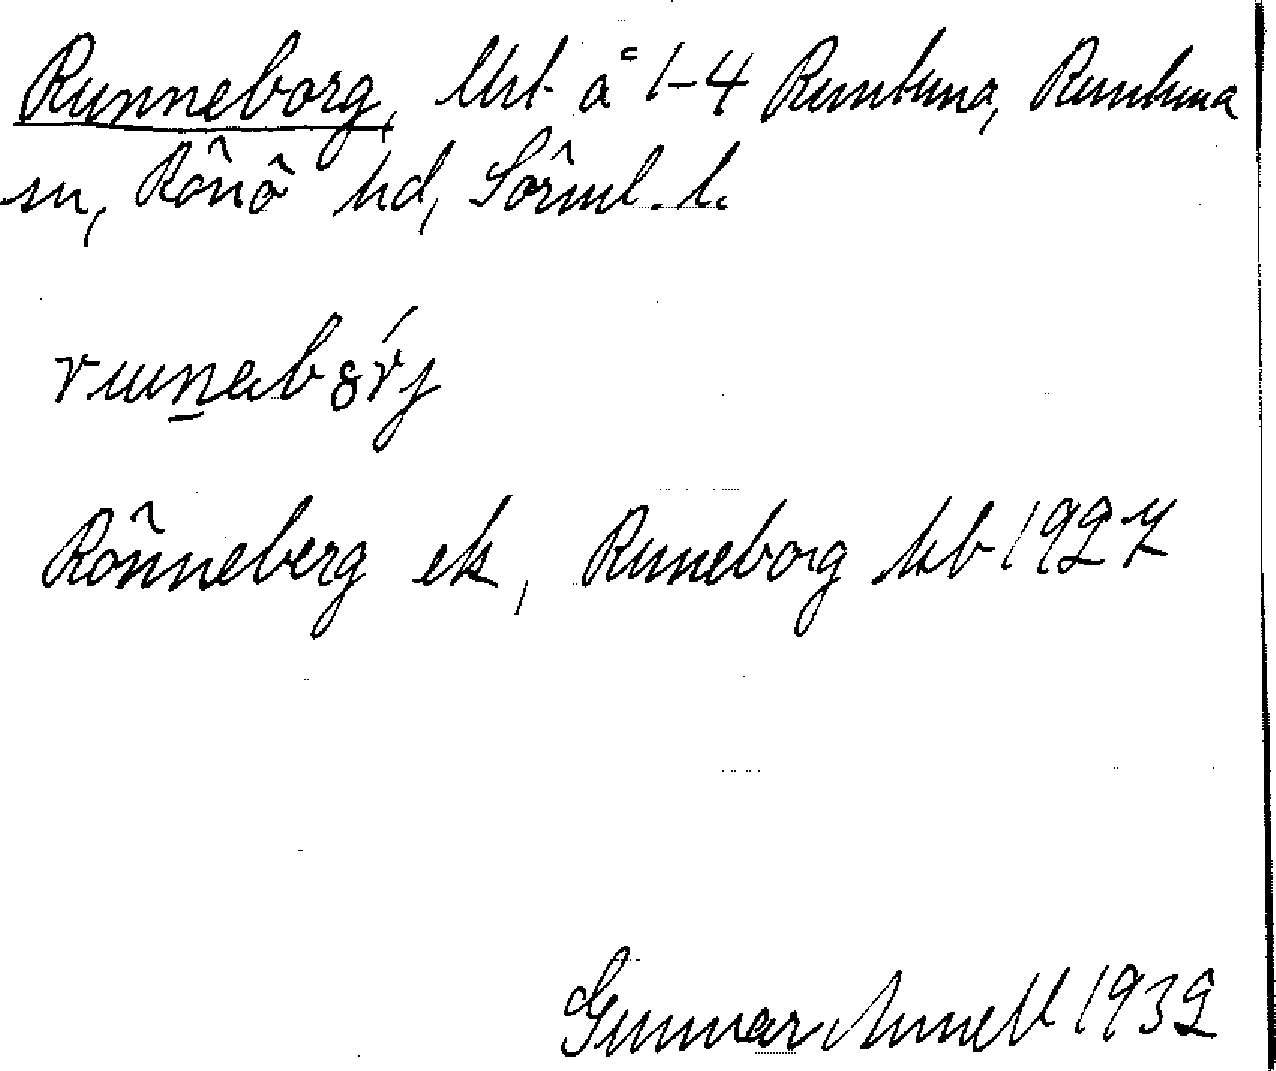 Runneborg, Utst å 1-4 Runtuna, Runtuna
sn, Rönö hd, Sörml. l.
runabårj
Rönneberg ek, Runeborg kb 1927
Gunnar Arnell 1932